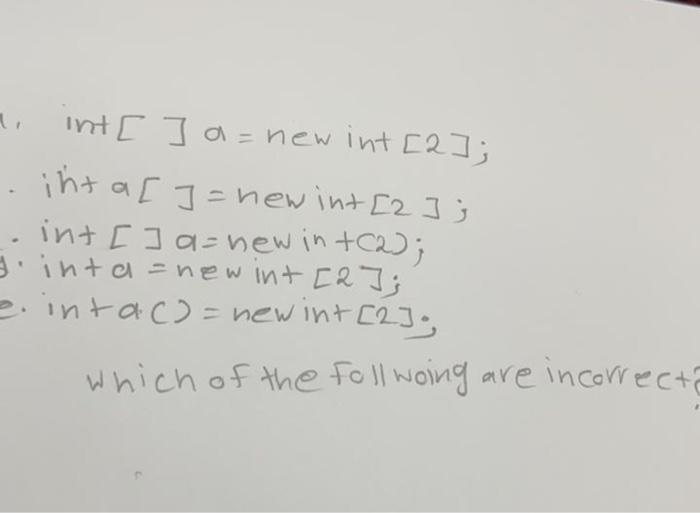 int[ ] a = new int [2];
int a[ ] = new int [2];
. int [ ] a = new int (2);
d. int a = new int [2];
e. int a() = new int [2];
which of the follwoing are incorrect?